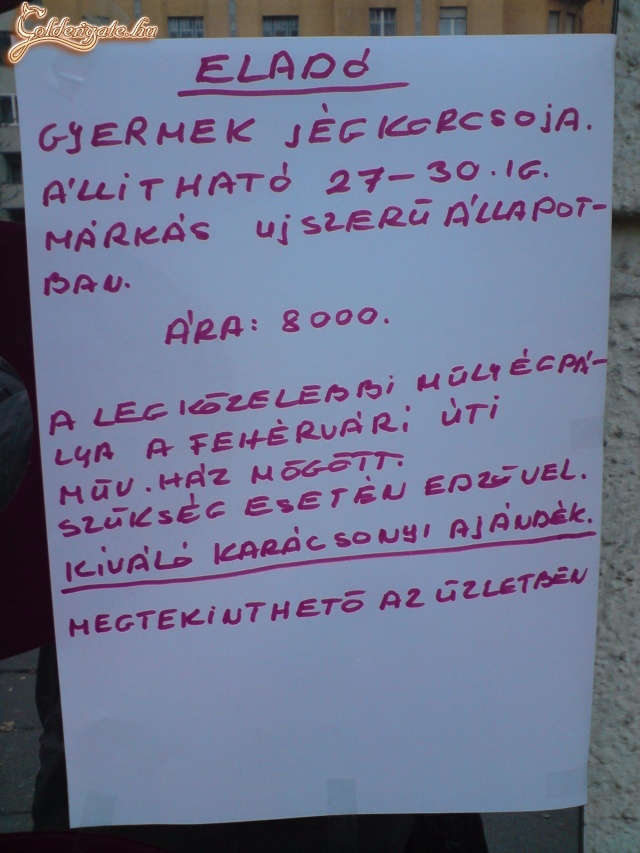 Goldengate.hu
ELADÓ
GYERMEK JÉGKORCSOJA.
ÁLLITHATÓ 27-30.IG.
MÁRKÁS UJSZERŰ ÁLLAPOT-
BAN.
ÁRA: 8000.
A LEGKÖZELEBBI MŰLYÉGPÁ-
LYA A FEHÉRVÁRI ÚTI
MŰV.HÁZ MÖGÖTT.
SZÜKSÉG ESETÉN EDZŐVEL.
KIVÁLÓ KARÁCSONYI AJÁNDÉK.
MEGTEKINTHETŐ AZ ÜZLETBEN